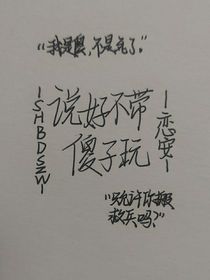 “我是，不是死了。”
—SHBDSZW—
说好不带
傻子玩
—恋安—
“只允许你搬
救兵吗？”